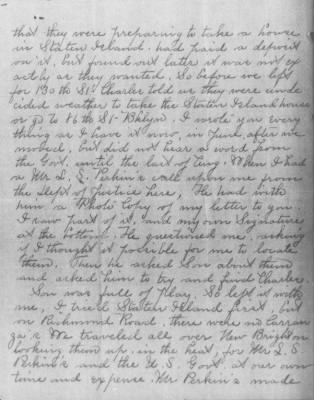 that they were preparing to take a house
in Staten Island. had paid a deposit
on it, but found out later it was not ex
actly as they wanted. So before we left
for 190th St. Charles told us they were unde
cided weather to take the Staten Island house
or go to 86th St- Bklyn. I wrote you every
thing as I have it now, in June, after we
moved, but did not hear a word from
the Govt. until the last of Aug. When I had
a Mr L. S. Perkin's call upon me from
the Dept of Justice here, He had with
him a Photo Copy of my letter to you.
I saw part of it, and my own Signature
at the bottom. He questioned me, asking
if I thought it possible for me to locate
them. Then he asked Son about them
and asked him to try and find Charles.
Son was full of Play. So left it with
me, I tried Staten Island first, but
on Richmond Road, there were no Carran
za's. We traveled all over New Brighton
looking them up. in the heat, for Mr L. S.
Perkin's and the U. S. Govt. at our own
time and expense. Mr Perkin's made